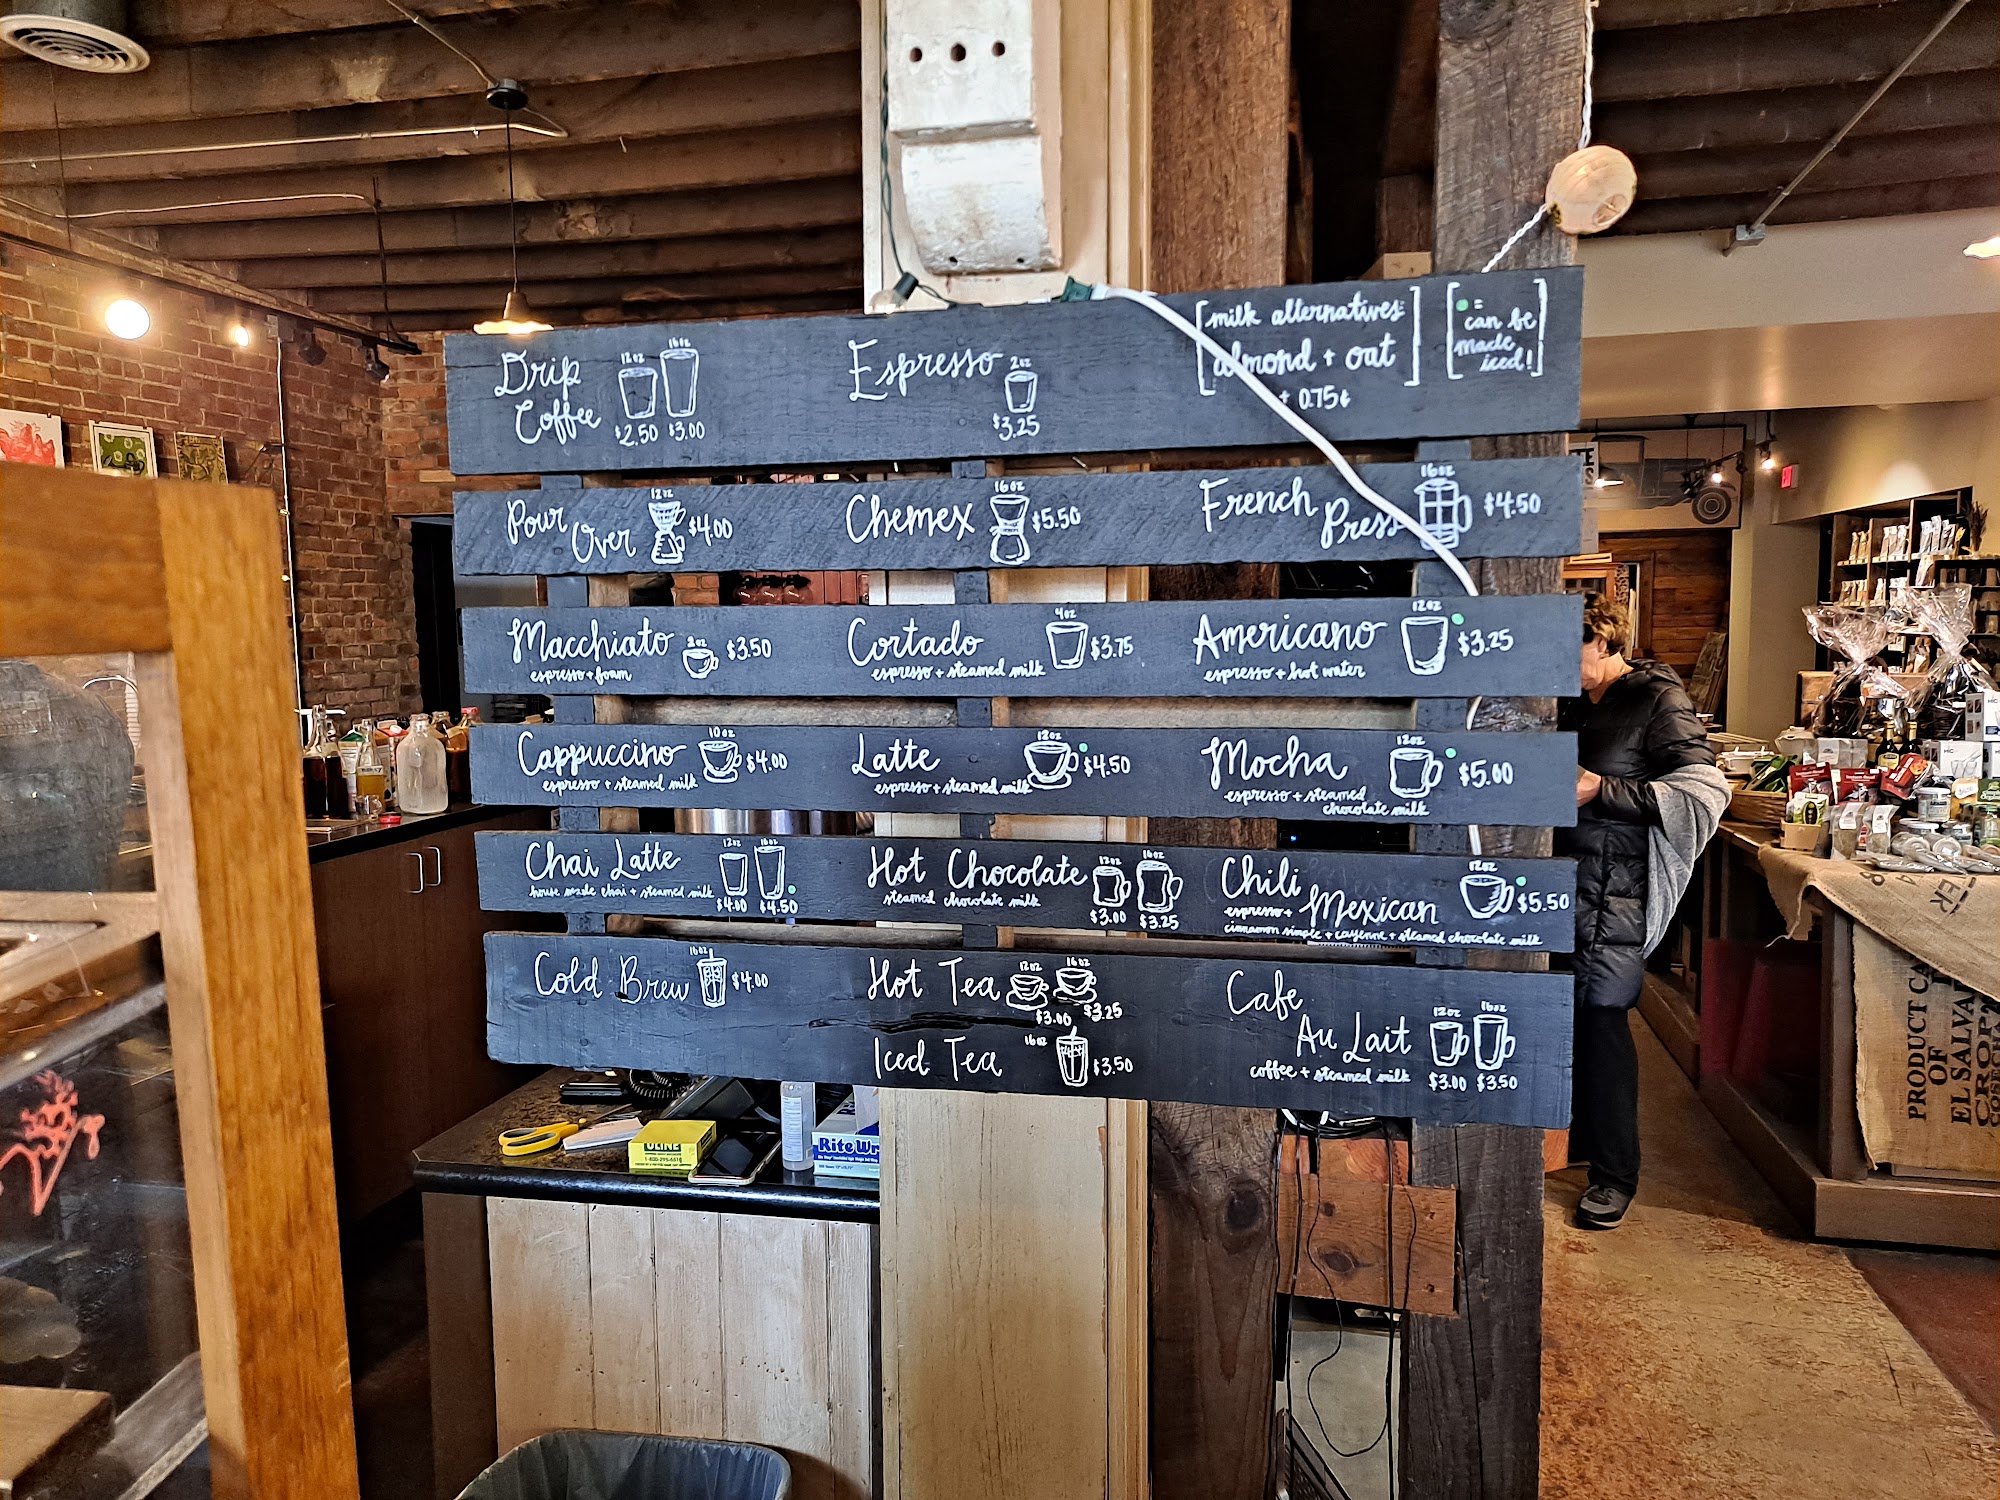 Drip
Coffee
12oz
16oz
$2.50 $3.00
Espresso
2oz
$3.25
[milk alternatives:
almond + oat]
+ 0.75¢
[ =
can be
made
iced!]
Pour
Over
12oz
$4.00
Chemex
16oz
$5.50
French
Press
16oz
$4.50
Macchiato
2oz
$3.50
espresso + foam
Cortado
4oz
$3.75
espresso + steamed milk
Americano
12oz
$3.25
espresso + hot water
Cappuccino
10oz
$4.00
espresso + steamed milk
Latte
12oz
$4.50
espresso + steamed milk
Mocha
12oz
$5.00
espresso + steamed
chocolate milk
Chai Latte
12oz
16oz
house made chai + steamed milk
$4.00 $4.50
Hot Chocolate
12oz
16oz
steamed chocolate milk
$3.00 $3.25
Chili
Mexican
12oz
$5.50
espresso +
cinnamon simple + cayenne + steamed chocolate milk
Cold Brew
16oz
$4.00
Hot Tea
12oz
16oz
$3.00 $3.25
Iced Tea
16oz
$3.50
Cafe
Au Lait
12oz
16oz
coffee + steamed milk
$3.00 $3.50
ULINE
1-800-295-5510
Rite Wr
PRODUCT
OF
EL SALVA
CROP